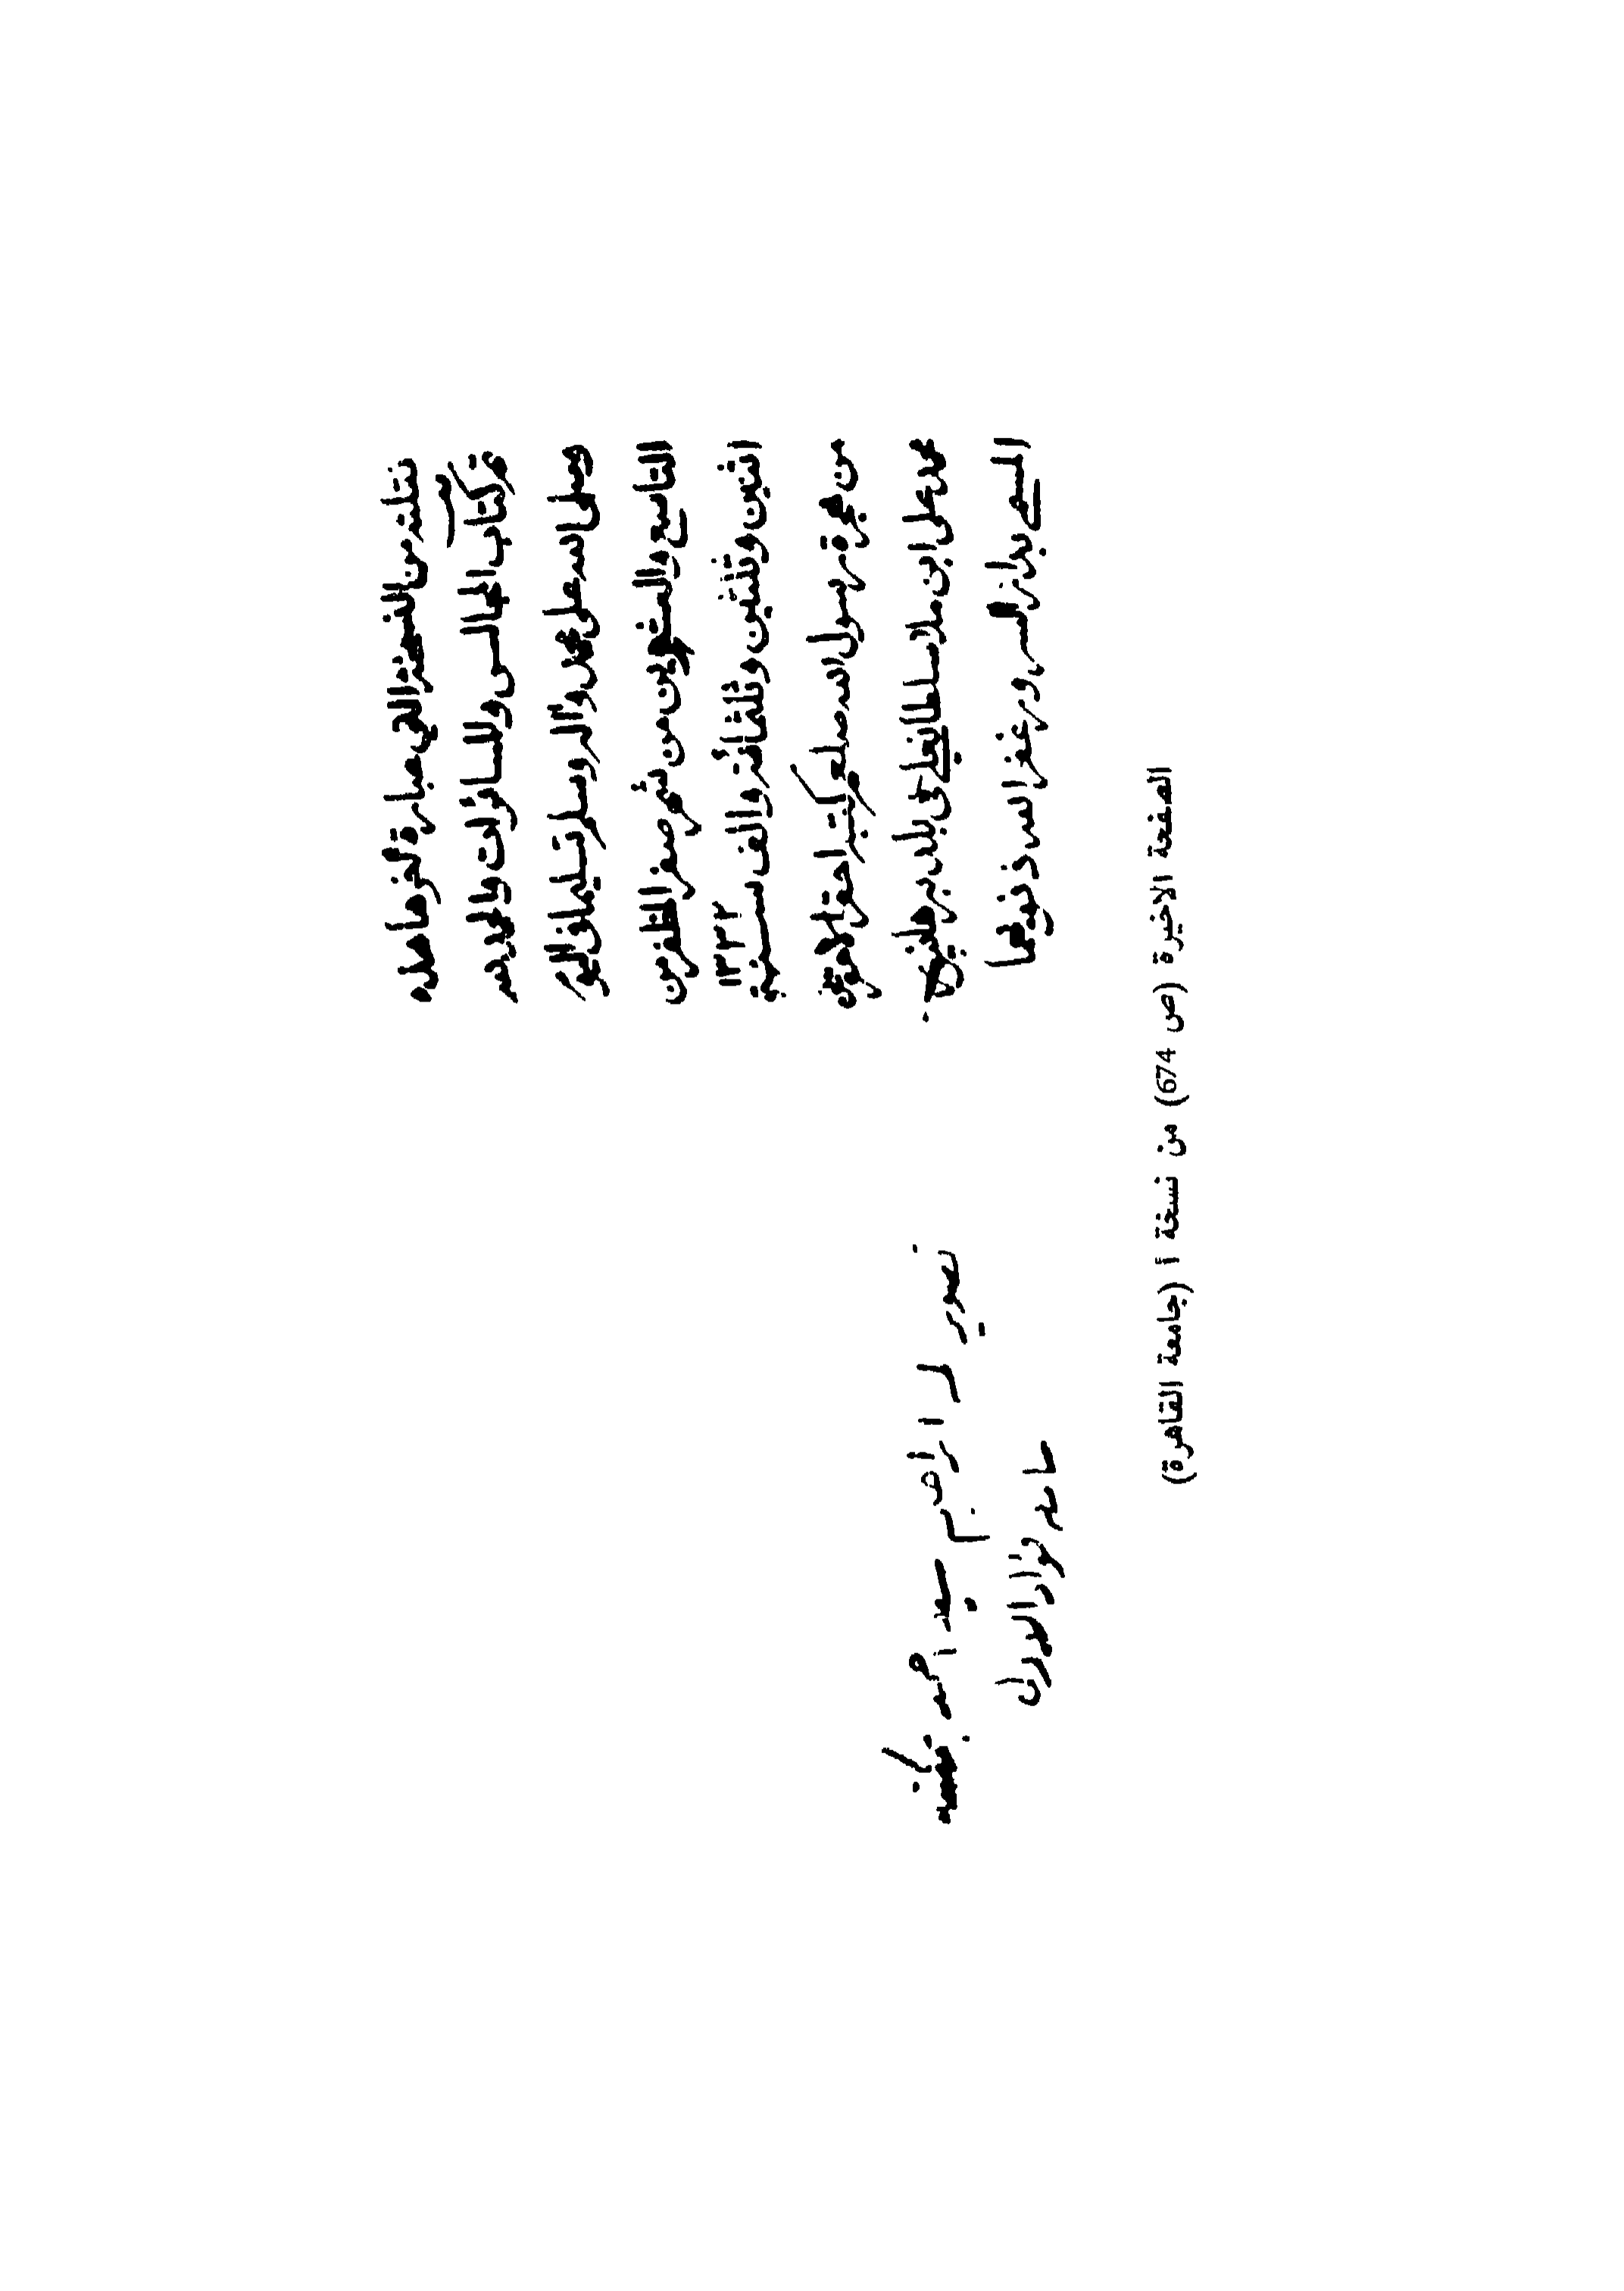 نقلته من النسخة التي عبارة آخرها هذه
تم كتاب المجالس والمسائرات والحمد لله
وصلى الله على محمد وآله وسلم تسليما في اليوم
التاسع والعشرين من شهر صفر المظفر من
اثنين وثلثين وثلثمائة والف سنة ١٣٣٢
من هجرة رسول الله صلعم كتبه احقر
محمد علي ابن ملا سلطانعلي في بلد برهانفور
المسمى بدار السرور غفر الله ذنوبهما
تصوير ابراهيم سيد احمد
جامعة فؤاد الاول
الصفحة الاخيرة (ص 674) من نسخة أ (جامعة القاهرة)